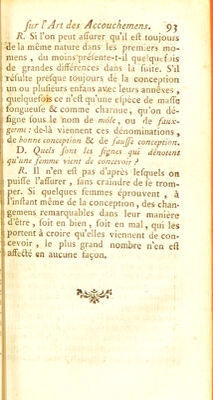 sur l'Art des Accouchemens. 93
R. Si l'on peut assurer qu'il est toujours
de la même nature dans les premiers mo-
mens, du moins présente-t-il quelquefois
de grandes différences dans la suite. S'il
résulte presque toujours de la conception
un ou plusieurs enfans avec leurs annexes,
quelquefois ce n'est qu'une espèce de masse
fongueuse & comme charnue, qu'on dé-
signe sous le nom de môle, ou de faux-
germe: de-là viennent ces dénominations,
de bonne conception & de fausse conception.
D. Quels sont les signes qui dénotent
qu'une femme vient de concevoir?
R. Il n'en est pas d'après lesquels on
puisse l'assurer, sans craindre de se trom-
per. Si quelques femmes éprouvent, à
l'instant même de la conception, des chan-
gemens remarquables dans leur manière
d'être, soit en bien, soit en mal, qui les
portent à croire qu'elles viennent de con-
cevoir, le plus grand nombre n'en est
affecté en aucune façon.